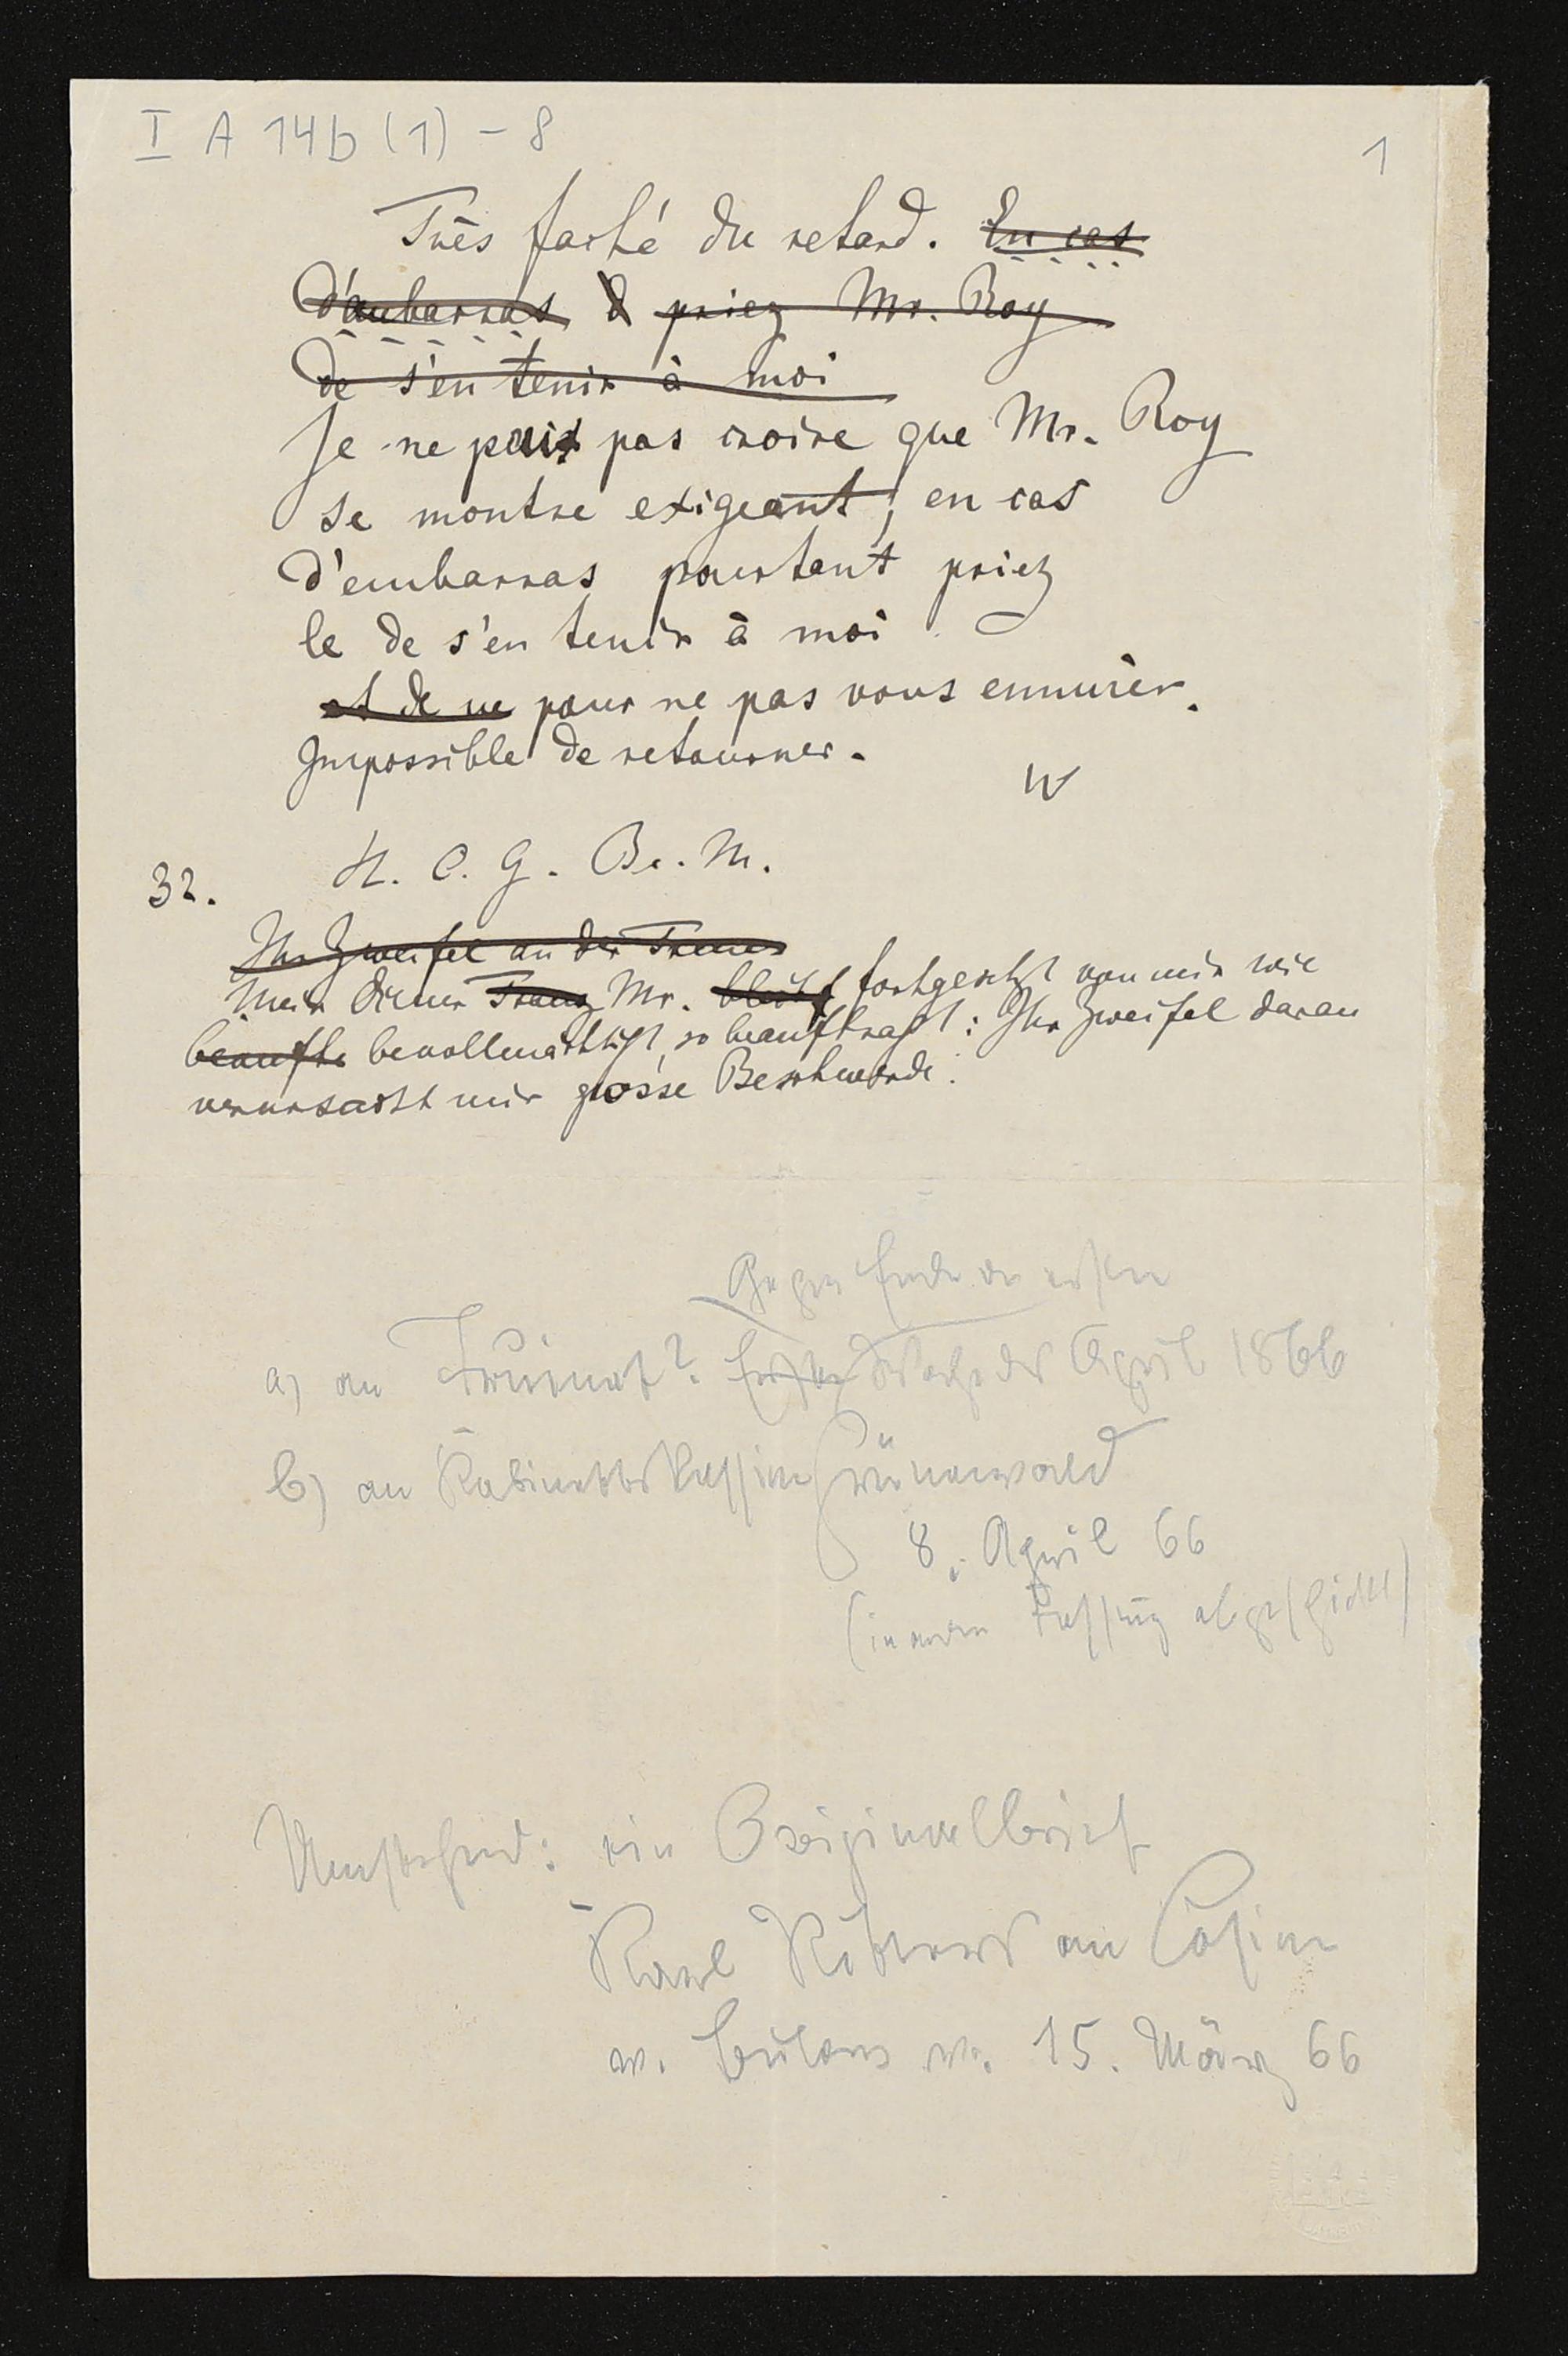 I A 14b (1) - 8
1
Très faché du retard. En cas
d'embarras & priez Mr. Roy
de s'en tenir à moi
Je ne puis pas croire que Mr. Roy
se montre exigeant; en cas
d'embarras pourtant priez
le de s'en tenir à moi
et de ne pour ne pas vous ennuier.
Impossible de retourner.
W
32.
H. C. G. B. M.
Ihr Zweifel an der Treue
Mein Diener Franz Mr. bleibt fortgesetzt von mir wie
beauftr bevollmächtigt, so beauftragt: Ihr Zweifel daran
verursacht mir grosse Beschwerde.
Gegen Ende der ersten
a) an Truinet? Erste Woche des April 1866
b) an Kabinettskassier Grünewald
8. April 66
(in andrer Fassung abgeschickt)
Umstehend: ein Originalbrief
Karl Ritters an Cosima
v. Bülow v. 15. März 66